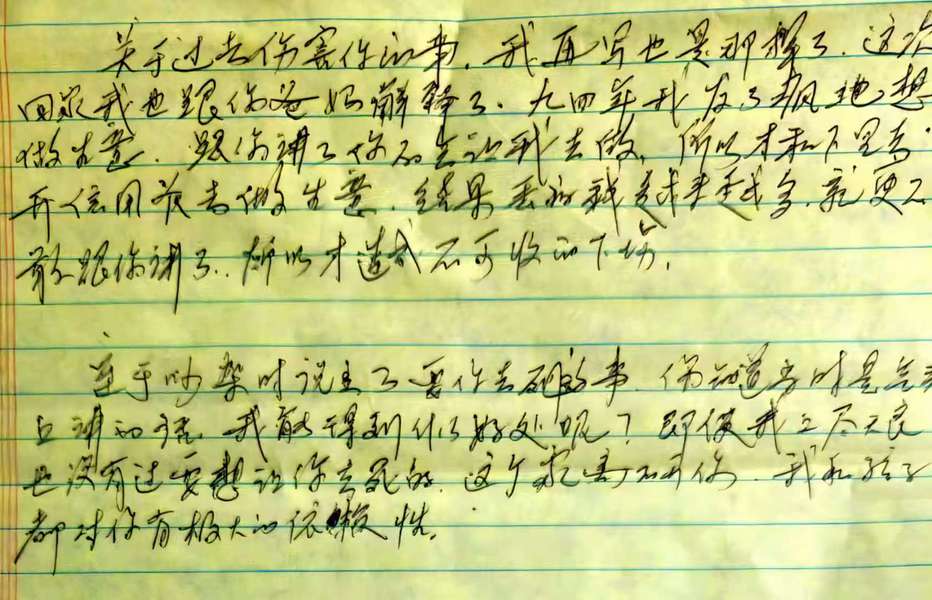 关于过去伤害你的事，我再写也是那样了．这次
回家我也跟你爸妈解释了．九四年我发了疯地想
做生意．跟你讲了你不会让我去做，所以才私下里去
开信用卡去做生意．结果丢的钱越来越多．就更不
敢跟你讲了．所以才造成不可收的下场．
至于吵架时说出了要你去死的事．你知道当时是气头
上讲的话．我能得到什么好处呢？即使我丧尽天良
也没有过要想让你去死的．这个家离不开你．我和孩子
都对你有极大的依懒性．